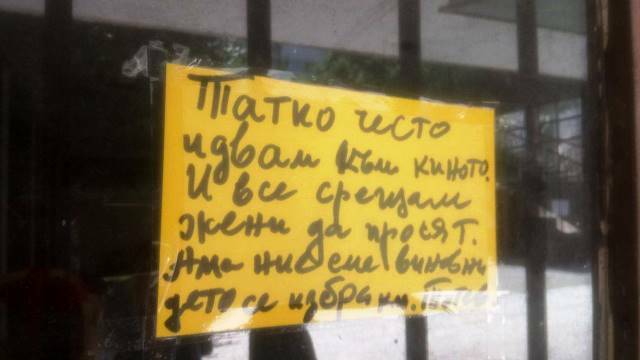 Татко често
идвам към киното.
И все срещам
жени да просят.
Ама ние сме виновни
дето се избрани.